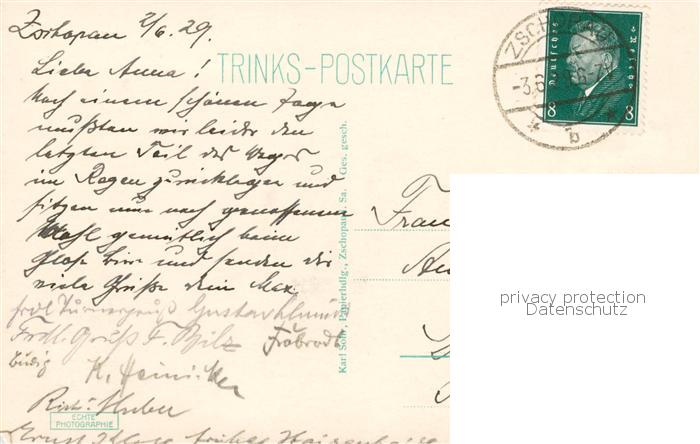 Zschopau 2/6. 29.
Liebe Anna!
Nach einem schönen Tage
mußten wir leider den
letzten Teil des Weges
im Regen zurücklegen und
sitzen nun nach genossenem
Mahl gemütlich beim
Glase Bier und senden dir
viele Grüße dein Max.
frdl. Turnergruß Gustav
Frdl. Gruß F. Bilz
K. Heinicker
Rich. Huber
Ernst
TRINKS-POSTKARTE
Karl Sohr, Papierhdlg., Zschopau, Sa. Ges. gesch.
ECHTE
PHOTOGRAPHIE
ZSCHOPAU
-3.6.
b
Deutsches Reich
8 8
Frau
privacy protection
Datenschutz